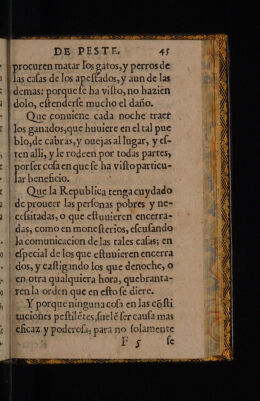 DE PESTE. 45
procuren matar los gatos, y perros de
las casas de los apestados, y aun de las
demas: porque se ha visto, no hazien
dolo, estenderse mucho el daño.
Que conuiene cada noche traer
los ganados, que huuiere en el tal pue
blo, de cabras, y ouejas al lugar, y es-
ten alli, y le rodeen por todas partes,
por ser cosa en que se ha visto particu-
lar beneficio.
Que la Republica tenga cuydado
de proueer las personas pobres y ne-
cessitadas, o que estuuieren encerra-
das, como en monesterios, escusando
la comunicacion de las tales casas; en
especial de los que estuuieren encerra
dos, y castigando los que denoche, o
en otra qualquiera hora, quebranta-
ren la orden que en esto se diere.
Y porque ninguna cosa en las cõsti
tuciones pestilẽtes, suele ser causa mas
eficaz y poderosa, para no solamente
F 5 se